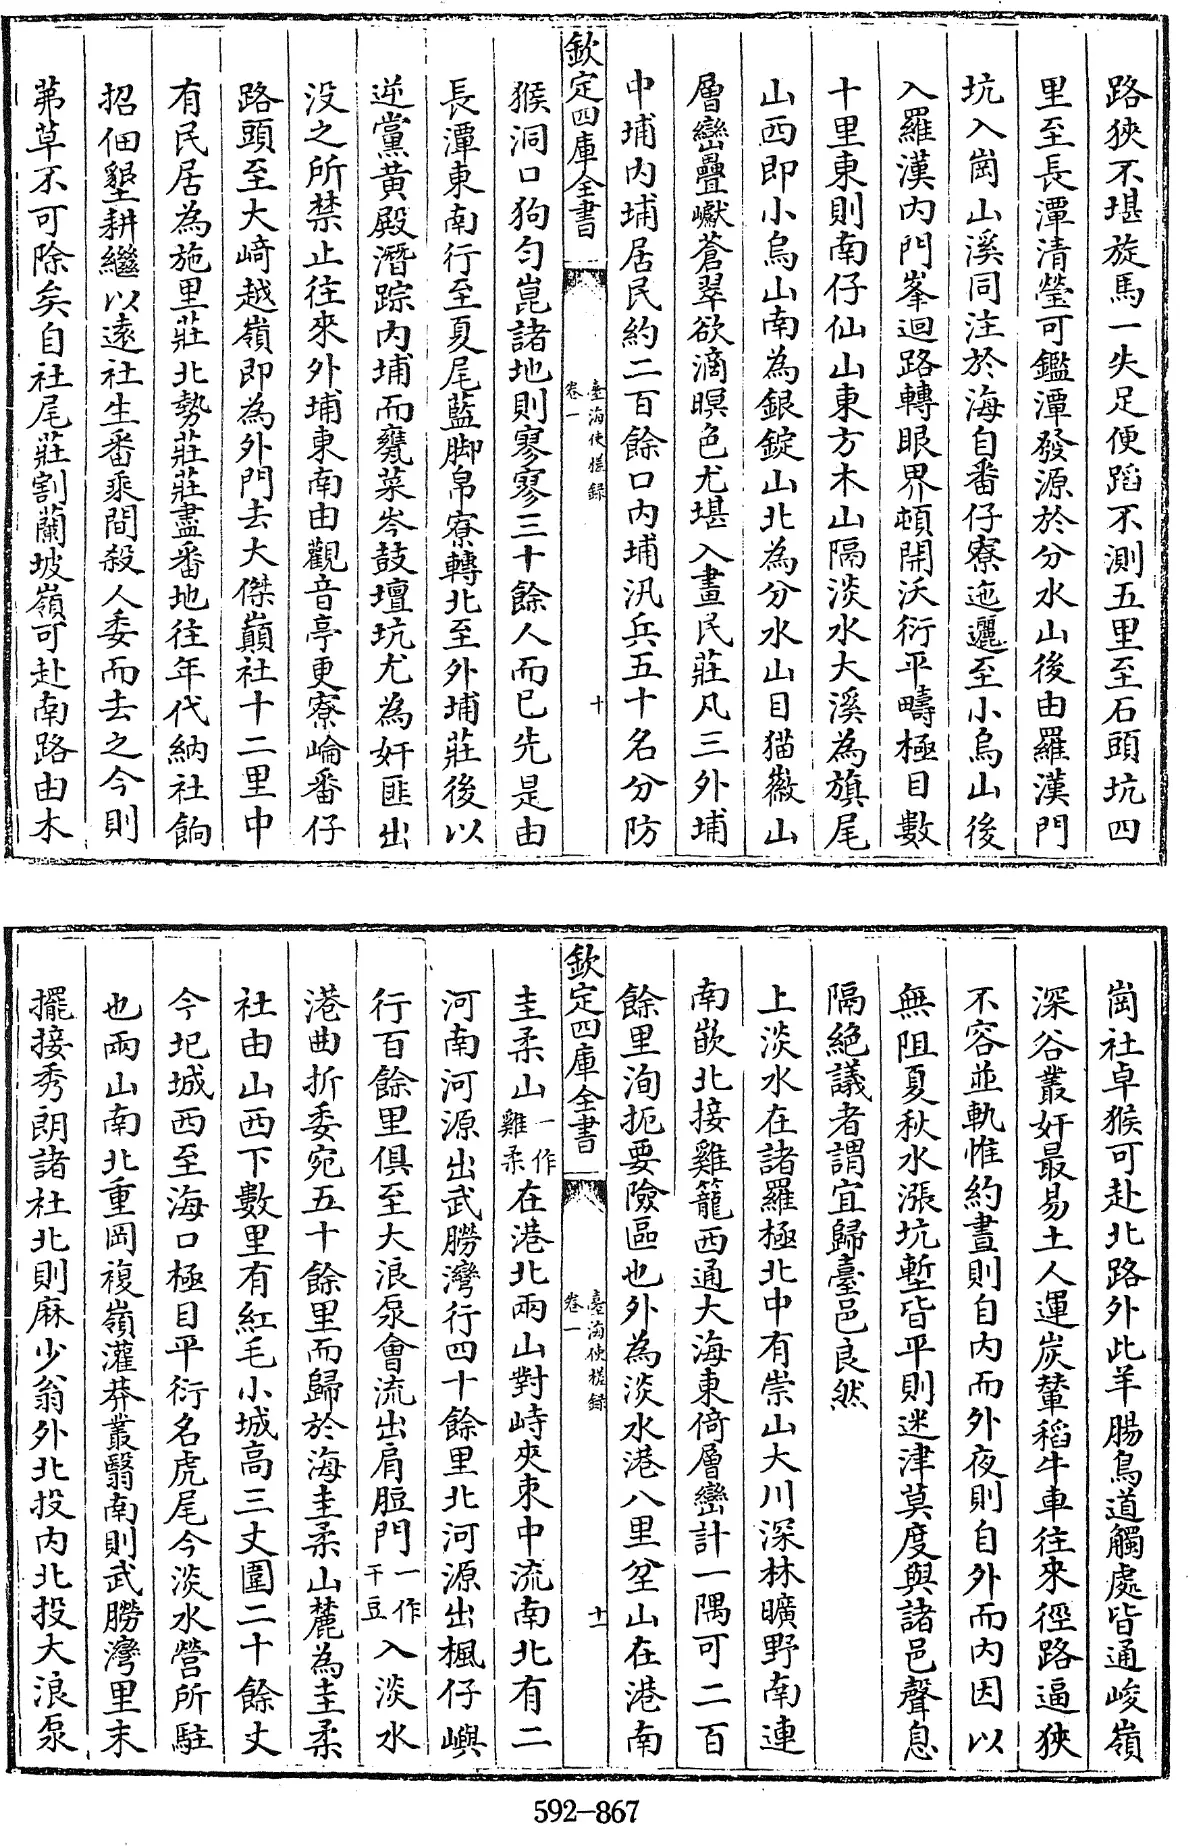 路狹不堪旋馬一失足便蹈不測五里至石頭坑四
里至長潭清瑩可鑑潭發源於分水山後由羅漢門
坑入崗山溪同注於海自番仔寮迤邐至小烏山後
入羅漢內門峯迴路轉眼界頓開沃衍平疇極目數
十里東則南仔仙山東方木山隔淡水大溪為旗尾
山西即小烏山南為銀錠山北為分水山目猫徽山
層巒疊巘蒼翠欲滴暝色尤堪入畫民莊凡三外埔
中埔內埔居民約二百餘口內埔汛兵五十名分防
欽定四庫全書
臺海使槎録
卷一
十
猴洞口狗勻崑諸地則寥寥三十餘人而已先是由
長潭東南行至夏尾藍脚帛寮轉北至外埔莊後以
逆黨黃殿潛踪內埔而甕菜岑鼓壇坑尤為奸匪出
沒之所禁止往來外埔東南由觀音亭更寮崙番仔
路頭至大崎越嶺即為外門去大傑巔社十二里中
有民居為施里莊北勢莊莊盡番地往年代納社餉
招佃墾耕繼以遠社生番乘間殺人委而去之今則
茀草不可除矣自社尾莊割蘭坡嶺可赴南路由木
崗社卓猴可赴北路外此羊腸鳥道觸處皆通峻嶺
深谷叢奸最易土人運炭輦稻牛車往來徑路逼狹
不容並軌惟約晝則自內而外夜則自外而內因以
無阻夏秋水漲坑塹皆平則迷津莫度與諸邑聲息
隔絶議者謂宜歸臺邑良然
上淡水在諸羅極北中有崇山大川深林曠野南連
南嵌北接雞籠西通大海東倚層巒計一隅可二百
餘里洵扼要險區也外為淡水港八里坌山在港南
欽定四庫全書
臺海使槎録
卷一
十一
圭柔山一作雞柔在港北兩山對峙夾束中流南北有二
河南河源出武朥灣行四十餘里北河源出楓仔嶼
行百餘里俱至大浪泵會流出肩脰門一作干豆入淡水
港曲折委宛五十餘里而歸於海圭柔山麓為圭柔
社由山西下數里有紅毛小城高三丈圍二十餘丈
今圯城西至海口極目平衍名虎尾今淡水營所駐
也兩山南北重岡複嶺灌莽叢翳南則武朥灣里末
擺接秀朗諸社北則麻少翁外北投內北投大浪泵
592-867